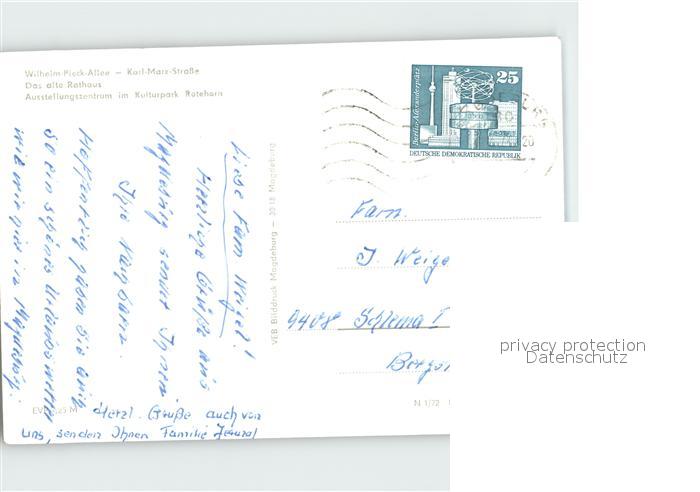 Wilhelm-Pieck-Allee – Karl-Marx-Straße
Das alte Rathaus
Ausstellungszentrum im Kulturpark Rotehorn
25
Berlin-Alexanderplatz
DEUTSCHE DEMOKRATISCHE REPUBLIK
VEB Bilddruck Magdeburg – 3018 Magdeburg
Liebe Fam Weigel!
Herzliche Grüße aus
Magdeburg sendet Ihnen
Ihre Nachbarn.
Hoffentlich haben Sie auch
so ein schönes Urlaubswetter
wie wir hier in Magdeburg!
Herzl. Grüße auch von
uns, senden Ihnen Familie
Fam.
J. Weige
9408 Schlema I
N 1/72
privacy protection
Datenschutz